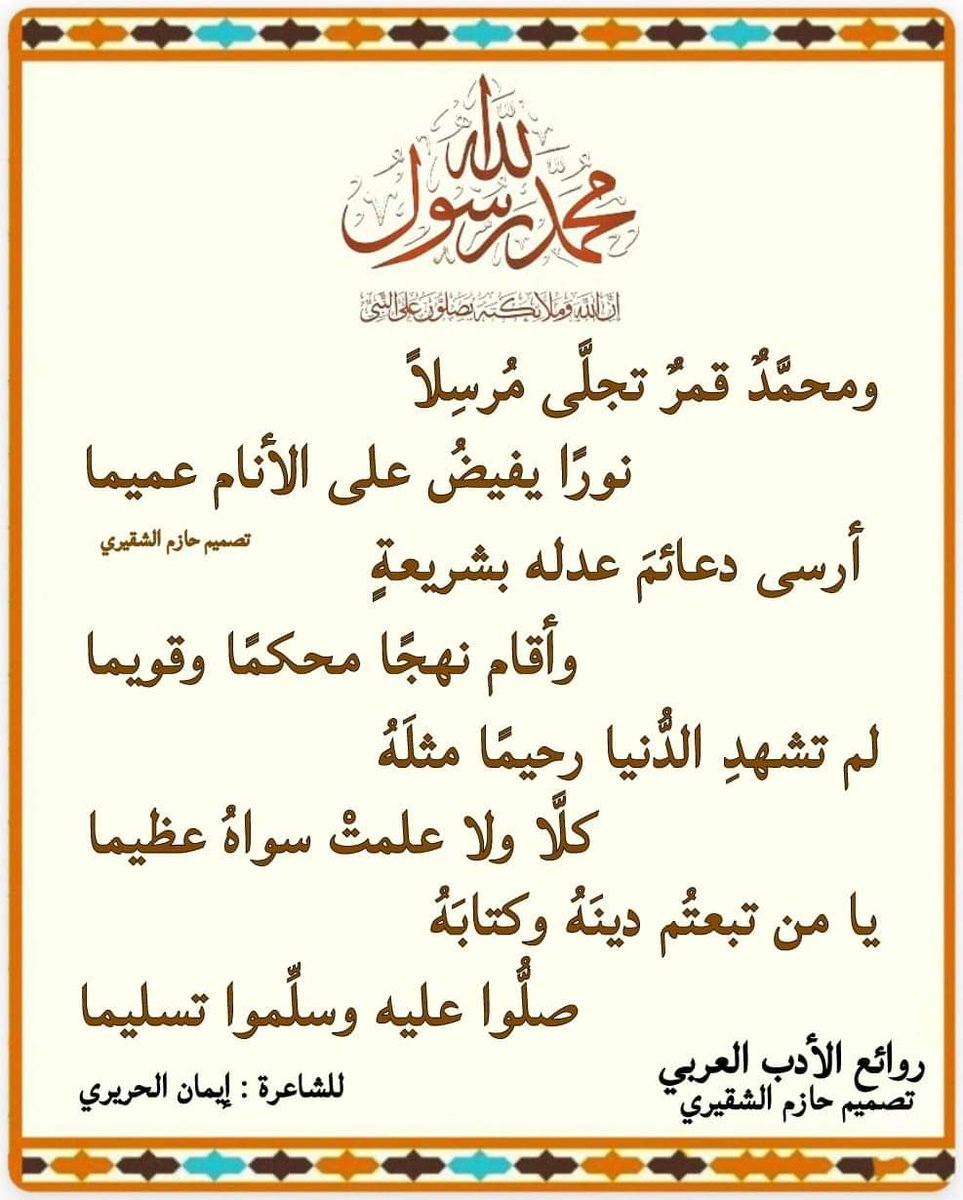 محمد رسول الله
إن الله وملائكته يصلون على النبي
ومحمَّدٌ قمرٌ تجلَّى مُرسِلاً
نورًا يفيضُ على الأنام عميما
تصميم حازم الشقيري
أرسى دعائمَ عدله بشريعةٍ
وأقام نهجًا محكمًا وقويما
لم تشهدِ الدُّنيا رحيمًا مثلَهُ
كلَّا ولا علمتْ سواهُ عظيما
يا من تبعتُم دينَهُ وكتابَهُ
صلُّوا عليه وسلِّموا تسليما
روائع الأدب العربي
تصميم حازم الشقيري
للشاعرة : إيمان الحريري